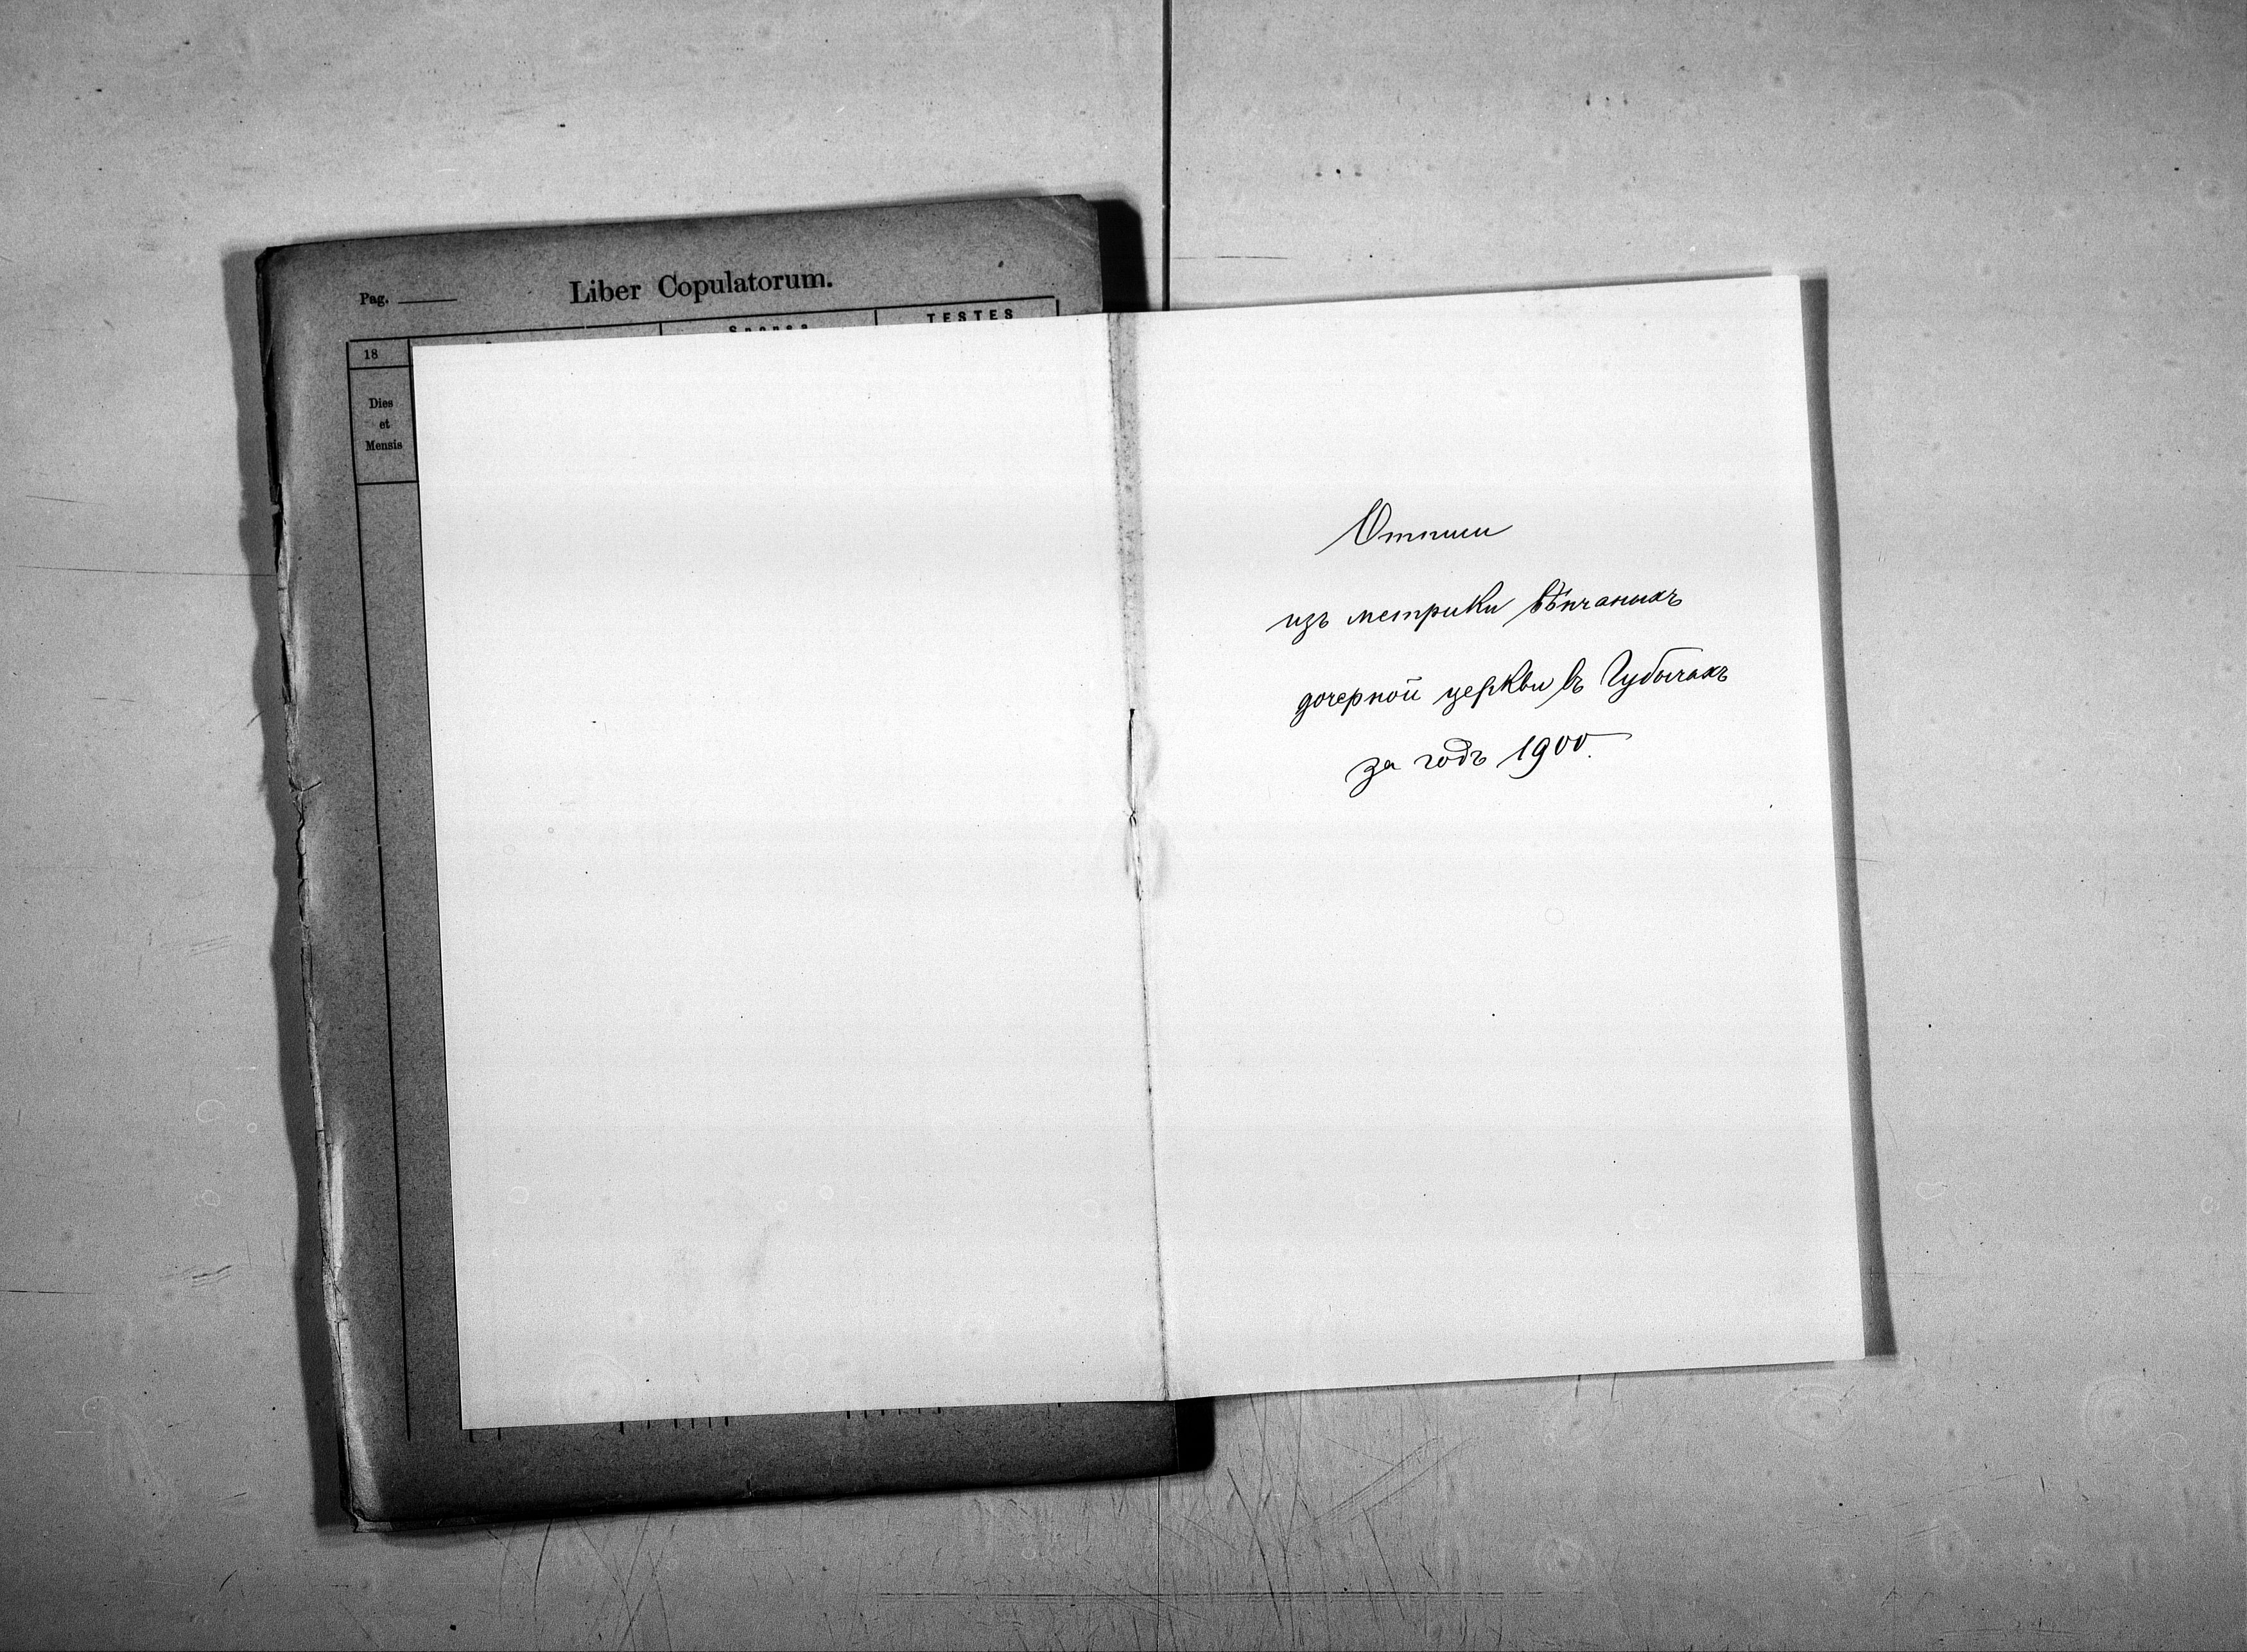 Pag.
Liber Copulatorum.
18
Sponsa
TESTES
Dies
et
Mensis
Отписи
изъ метрики вѣнчаныхъ
дочерной церкви въ Губычахъ
за годъ 1900.